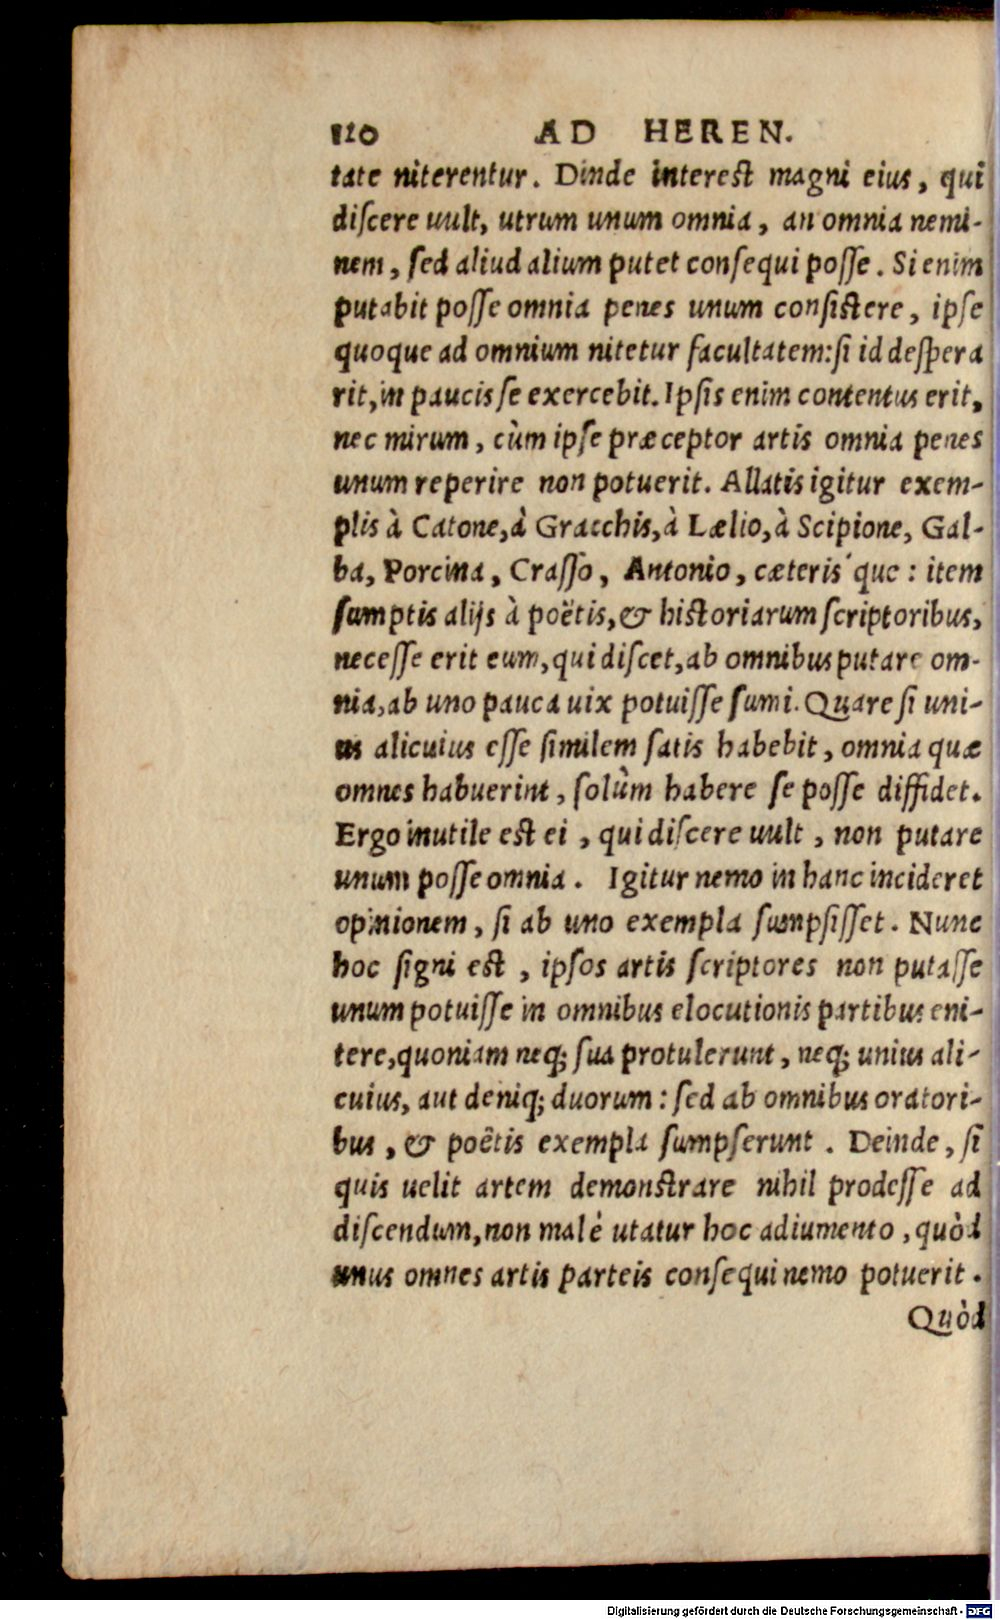 110 AD HEREN.
tate niterentur. Dinde interest magni eius, qui
diſcere uult, utrum unum omnia, an omnia nemi-
nem, ſed aliud alium putet conſequi poſſe. Si enim
putabit poſſe omnia penes unum conſiſtere, ipſe
quoque ad omnium nitetur facultatem: ſi id deſpera
rit, in paucis ſe exercebit. Ipſis enim contentus erit,
nec mirum, cùm ipſe præceptor artis omnia penes
unum reperire non potuerit. Allatis igitur exem-
plis à Catone, à Gracchis, à Lælio, à Scipione, Gal-
ba, Porcina, Craſſo, Antonio, cæteris que: item
ſumptis alijs à poëtis, & hiſtoriarum ſcriptoribus,
neceſſe erit eum, qui diſcet, ab omnibus putare om-
nia, ab uno pauca uix potuiſſe ſumi. Quare ſi uni-
us alicuius eſſe ſimilem ſatis habebit, omnia quæ
omnes habuerint, ſolùm habere ſe poſſe diffidet.
Ergo inutile eſt ei, qui diſcere uult, non putare
unum poſſe omnia. Igitur nemo in hanc incideret
opinionem, ſi ab uno exempla ſumpſiſſet. Nunc
hoc ſigni eſt, ipſos artis ſcriptores non putaſſe
unum potuiſſe in omnibus elocutionis partibus eni-
tere, quoniam neq; ſua protulerunt, neq; unius ali-
cuius, aut deniq; duorum: ſed ab omnibus oratori-
bus, & poëtis exempla ſumpſerunt. Deinde, ſi
quis uelit artem demonſtrare nihil prodeſſe ad
diſcendum, non malè utatur hoc adiumento, quòd
unus omnes artis parteis conſequi nemo potuerit.
Quòd
Digitalisierung gefördert durch die Deutsche Forschungsgemeinschaft - DFG